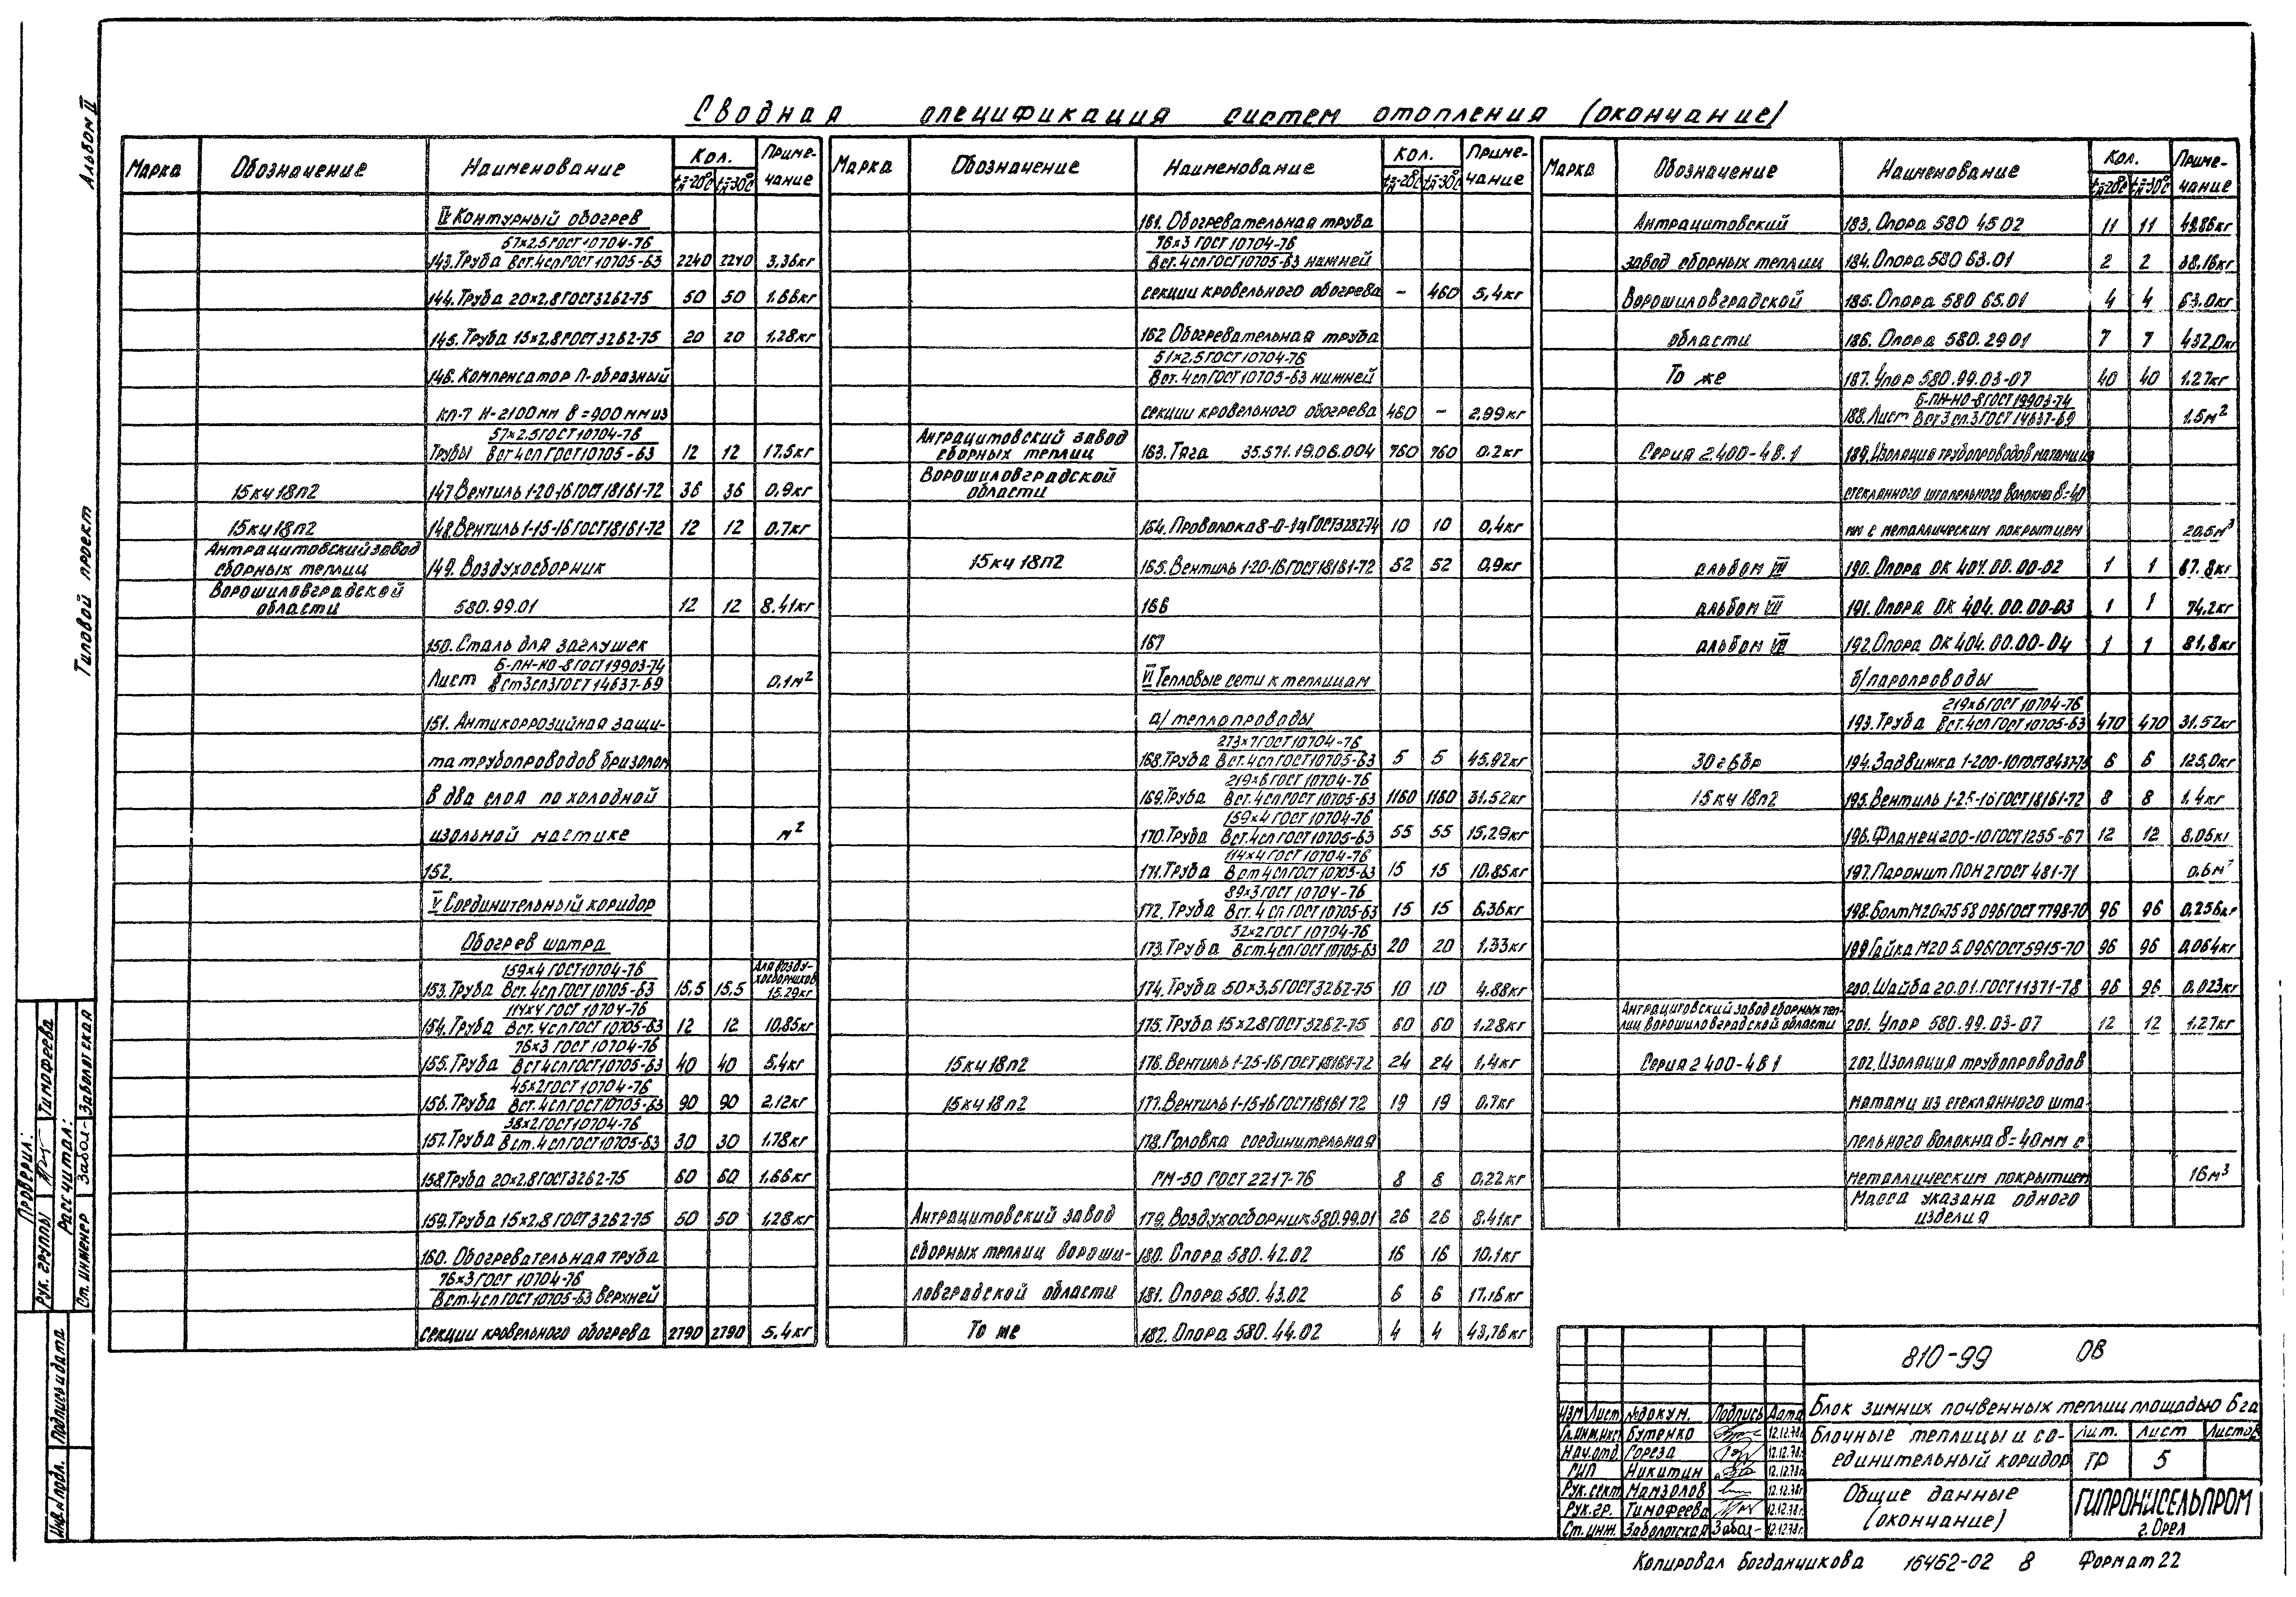 Сводная спецификация систем отопления (окончание)
Альбом II
Типовой проект
Марка Обозначение Наименование Кол. Примечание
tн=-20°С tн=-30°С
IV Контурный обогрев
57×2.5 ГОСТ 10704-76
143. Труба Вст.4сп ГОСТ 10705-63 2240 2240 3,36кг
144. Труба 20×2,8 ГОСТ 3262-75 50 50 1.66кг
145. Труба 15×2,8 ГОСТ 3262-75 20 20 1,28кг
146. Компенсатор П-образный
КП-7 Н-2100мм В=900мм из
57×2.5 ГОСТ 10704-76
Трубы Вст 4сп ГОСТ 10705-63 12 12 17.5кг
15кч18п2 147 Вентиль 1-20-16 ГОСТ 18161-72 36 36 0,9кг
15кч18п2 148. Вентиль 1-15-16 ГОСТ 18161-72 12 12 0.7кг
Антрацитовский завод
сборных теплиц 149. Воздухосборник
Ворошиловградской
области 580.99.01 12 12 8.41кг
150. Сталь для заглушек
Б-ПН-НО-8 ГОСТ 19903-74
Лист Вст3сп3 ГОСТ 14637-69 0,1м2
151. Антикоррозийная защи-
та трубопроводов бризолом
в два слоя по холодной
изольной мастике м2
152.
V Соединительный коридор
Обогрев шатра
159×4 ГОСТ 10704-76 Для возду-
153. Труба Вст.4сп ГОСТ 10705-63 15,5 15,5 хосборников 15.29кг
114×4 ГОСТ 10704-76
154. Труба Вст.4сп ГОСТ 10705-63 12 12 10,85кг
76×3 ГОСТ 10704-76
155. Труба Вст.4сп ГОСТ 10705-63 40 40 5,4кг
45×2 ГОСТ 10704-76
156. Труба Вст.4сп ГОСТ 10705-63 90 90 2.12кг
38×2 ГОСТ 10704-76
157. Труба Вст.4сп ГОСТ 10705-63 30 30 1.78кг
158. Труба 20×2.8 ГОСТ 3262-75 60 60 1.66кг
159. Труба 15×2,8 ГОСТ 3262-75 50 50 1.28кг
160. Обогревательная труба
76×3 ГОСТ 10704-76
Вст.4сп ГОСТ 10705-63 верхней
секции кровельного обогрева 2790 2790 5.4кг
Марка Обозначение Наименование Кол. Примечание
tн=-20°С tн=-30°С
161. Обогревательная труба
76×3 ГОСТ 10704-76
Вст.4сп ГОСТ 10705-63 нижней
секции кровельного обогрева - 460 5,4кг
162 Обогревательная труба
51×2.5 ГОСТ 10704-76
Вст.4сп ГОСТ 10705-63 нижней
секции кровельного обогрева 460 - 2.99кг
Антрацитовский завод
сборных теплиц 163. Тяга 35.571.19.06.004 760 760 0.2кг
Ворошиловградской
области
164. Проволока 8-0-1ц ГОСТ 3282-74 10 10 0,4кг
15кч18п2 165. Вентиль 1-20-16 ГОСТ 18161-72 52 52 0,9кг
166
167
VI Тепловые сети к теплицам
а/ теплопроводы
273×7 ГОСТ 10704-76
168. Труба Вст.4сп ГОСТ 10705-63 5 5 45.92кг
219×6 ГОСТ 10704-76
169. Труба Вст.4сп ГОСТ 10705-63 1160 1160 31.52кг
159×4 ГОСТ 10704-76
170. Труба Вст.4сп ГОСТ 10705-63 55 55 15,29кг
114×4 ГОСТ 10704-76
171. Труба Вст 4сп ГОСТ 10705-63 15 15 10.85кг
89×3 ГОСТ 10704-76
172. Труба Вст.4 сп ГОСТ 10705-63 15 15 6,36кг
32×2 ГОСТ 10704-76
173. Труба Вст.4сп ГОСТ 10705-63 20 20 1.33кг
174. Труба 50×3,5 ГОСТ 3262-75 10 10 4.88кг
175. Труба 15×2.8 ГОСТ 3262-75 60 60 1.28кг
15кч18п2 176. Вентиль 1-25-16 ГОСТ 18161-72 24 24 1,4кг
15кч18п2 177. Вентиль 1-15-16 ГОСТ 18161 72 19 19 0.7кг
178. Головка соединительная
ГМ-50 ГОСТ 2217-76 8 8 0,22кг
Антрацитовский завод 179. Воздухосборник 580.99.01 26 26 8.41кг
сборных теплиц Вороши- 180. Опора 580.42.02 16 16 10,1кг
ловградской области 181. Опора 580.43.02 6 6 17.16кг
То же 182. Опора 580.44.02 4 4 43,76кг
Марка Обозначение Наименование Кол. Примечание
tн=-20°С tн=-30°С
Антрацитовский 183. Опора 580 45 02 11 11 49.86кг
завод сборных теплиц 184. Опора 580 63.01 2 2 38.16кг
Ворошиловградской 185. Опора 580 65.01 4 4 63.0кг
области 186. Опора 580.29 01 7 7 432,0кг
То же 187. Упор 580.99.03-07 40 40 1.27кг
Б-ПН-НО-8 ГОСТ 19903-74
188. Лист Вст3сп.3 ГОСТ 14637-69 1.5м2
Серия 2.400-4В.1 189. Изоляция трубопроводов матами из
стеклянного штапельного волокна δ=40
мм с металлическим покрытием 20,5м3
альбом VII 190. Опора ОК 404.00.00-02 1 1 67.8кг
альбом VII 191. Опора ОК 404.00.00-03 1 1 74,2кг
альбом VII 192. Опора ОК 404.00.00-04 1 1 81,8кг
б/паропроводы
219×6 ГОСТ 10704-76
193. Труба Вст.4сп ГОСТ 10705-63 470 470 31.52кг
30ч6бр 194. Задвижка 1-200-10 ГОСТ 8437-75 6 6 125,0кг
15кч18п2 195. Вентиль 1-25-16 ГОСТ 18161-72 8 8 1.4кг
196. Фланец 200-10 ГОСТ 1255-67 12 12 8.05кг
197. Паронит ПОН 2 ГОСТ 481-71 0,6м2
198. Болт М20×75 58 096 ГОСТ 7798-70 96 96 0,256кг
199 Гайка М20 5.096 ГОСТ 5915-70 96 96 0.064кг
200. Шайба 20.01. ГОСТ 11371-78 96 96 0.023кг
Антрацитовский завод сборных теп-
лиц Ворошиловградской области 201. Упор 580.99.03-07 12 12 1.27кг
Серия 2 400-4В1 202. Изоляция трубопроводов
матами из стеклянного шта-
пельного волокна δ=40мм с
металлическим покрытием 16м3
Масса указана одного
изделия
Проверил:
Рук. группы Тимофеева
Рассчитал:
Ст. инженер Забол- Заболотская
Подпись и дата
Инв.№ подл.
810-99 ОВ
Блок зимних почвенных теплиц площадью 6га
Изм Лист №докум. Подпись Дата
Гл.инж.инс Бутенко 12.12.78г
Нач.отд. Гореза 12.12.78г
ГИП Никитин 12.12.78г
Рук.сект Мамзолов 12.12.78г
Рук.гр. Тимофеева 12.12.78г
Ст.инж. Заболотская Забол- 12.12.78г
Блочные теплицы и со-
единительный коридор
Лит. Лист Листов
ТР 5
Общие данные
(окончание)
ГИПРОНИСЕЛЬПРОМ
г.Орел
Копировал Богданчикова 16462-02 8 Формат 22